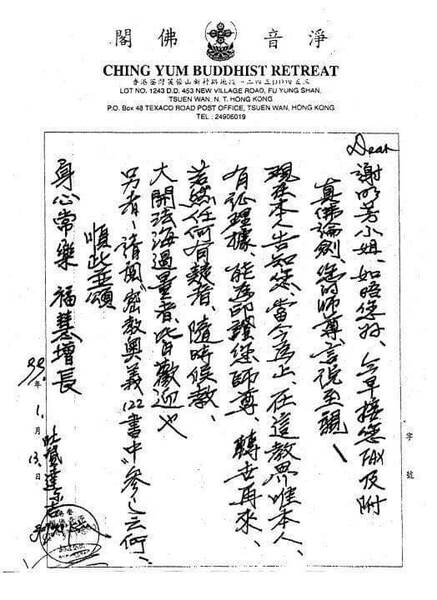 淨音佛閣
CHING YUM BUDDHIST RETREAT
香港荃灣芙蓉山新村路地段一二四三DD四五三
LOT NO. 1243 D.D. 453 NEW VILLAGE ROAD, FU YUNG SHAN,
TSUEN WAN, N. T. HONG KONG
P.O. Box 48 TEXACO ROAD POST OFFICE, TSUEN WAN, HONG KONG
TEL : 24906019
字號
Dear 謝明芳小姐、如晤您好、今早接您FAX及附
真佛論劍、您的師尊言說至、
現在本人告知您、當今為止、在這教界唯本人、
有証理據、能為印證您師尊、轉世再來、
若然任何有疑者、隨時候教、
大開法海過量者、皆自歡迎也
另者、請閱"密教奧義122書中"參之云何、
順此並頌
身心常樂 福慧增長
99年1月13日